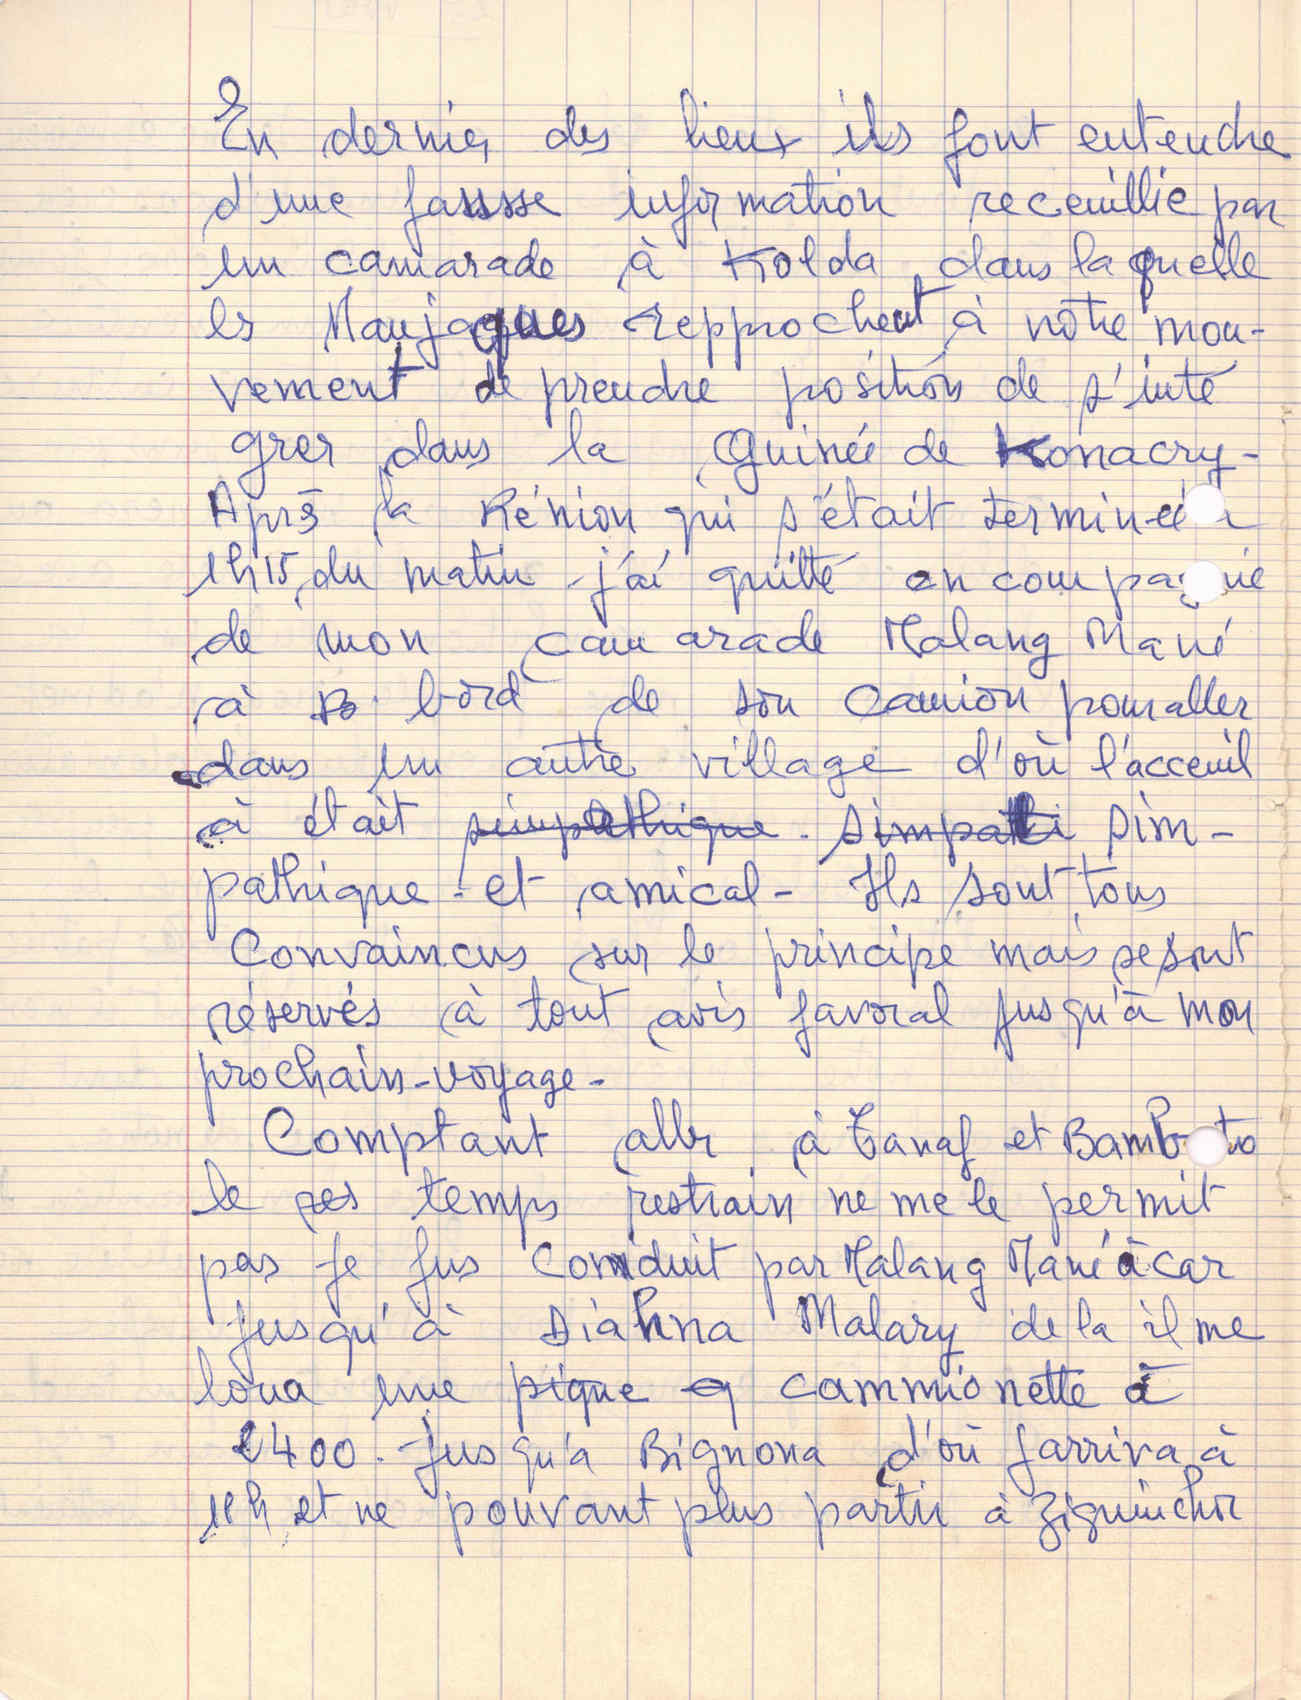 En dernier des lieux ils font entendre
d'une fausse information receuillie par
un camarade à Kolda dans laquelle
les Manjaques repprochent à notre mou-
vement de prendre position de s'inté
grer dans la Guinée de Konacry-
Après la Rénion qui s'était terminée à
1h15 du matin j'ai quitté en compagnie
de mon camarade Malang Mané
à bord de son camion pour aller
dans un autre village d'où l'acceuil
à était simpathique. simpathi sim-
pathique et amical- Ils sont tous
Convaincus sur le principe mais se sont
réservés à tout avis favoral jusqu'à mon
prochain-voyage-
Comptant aller à Tanaf et Bambato
le temps restrain ne me le permit
pas je fus conduit par Malang Mané à car
jusqu'à Diahna Malary de la il me
loua une pique cammionette à
2400. jusqu'a Bignona d'où j'arriva à
11h et ne pouvant plus partir à Ziguinchor